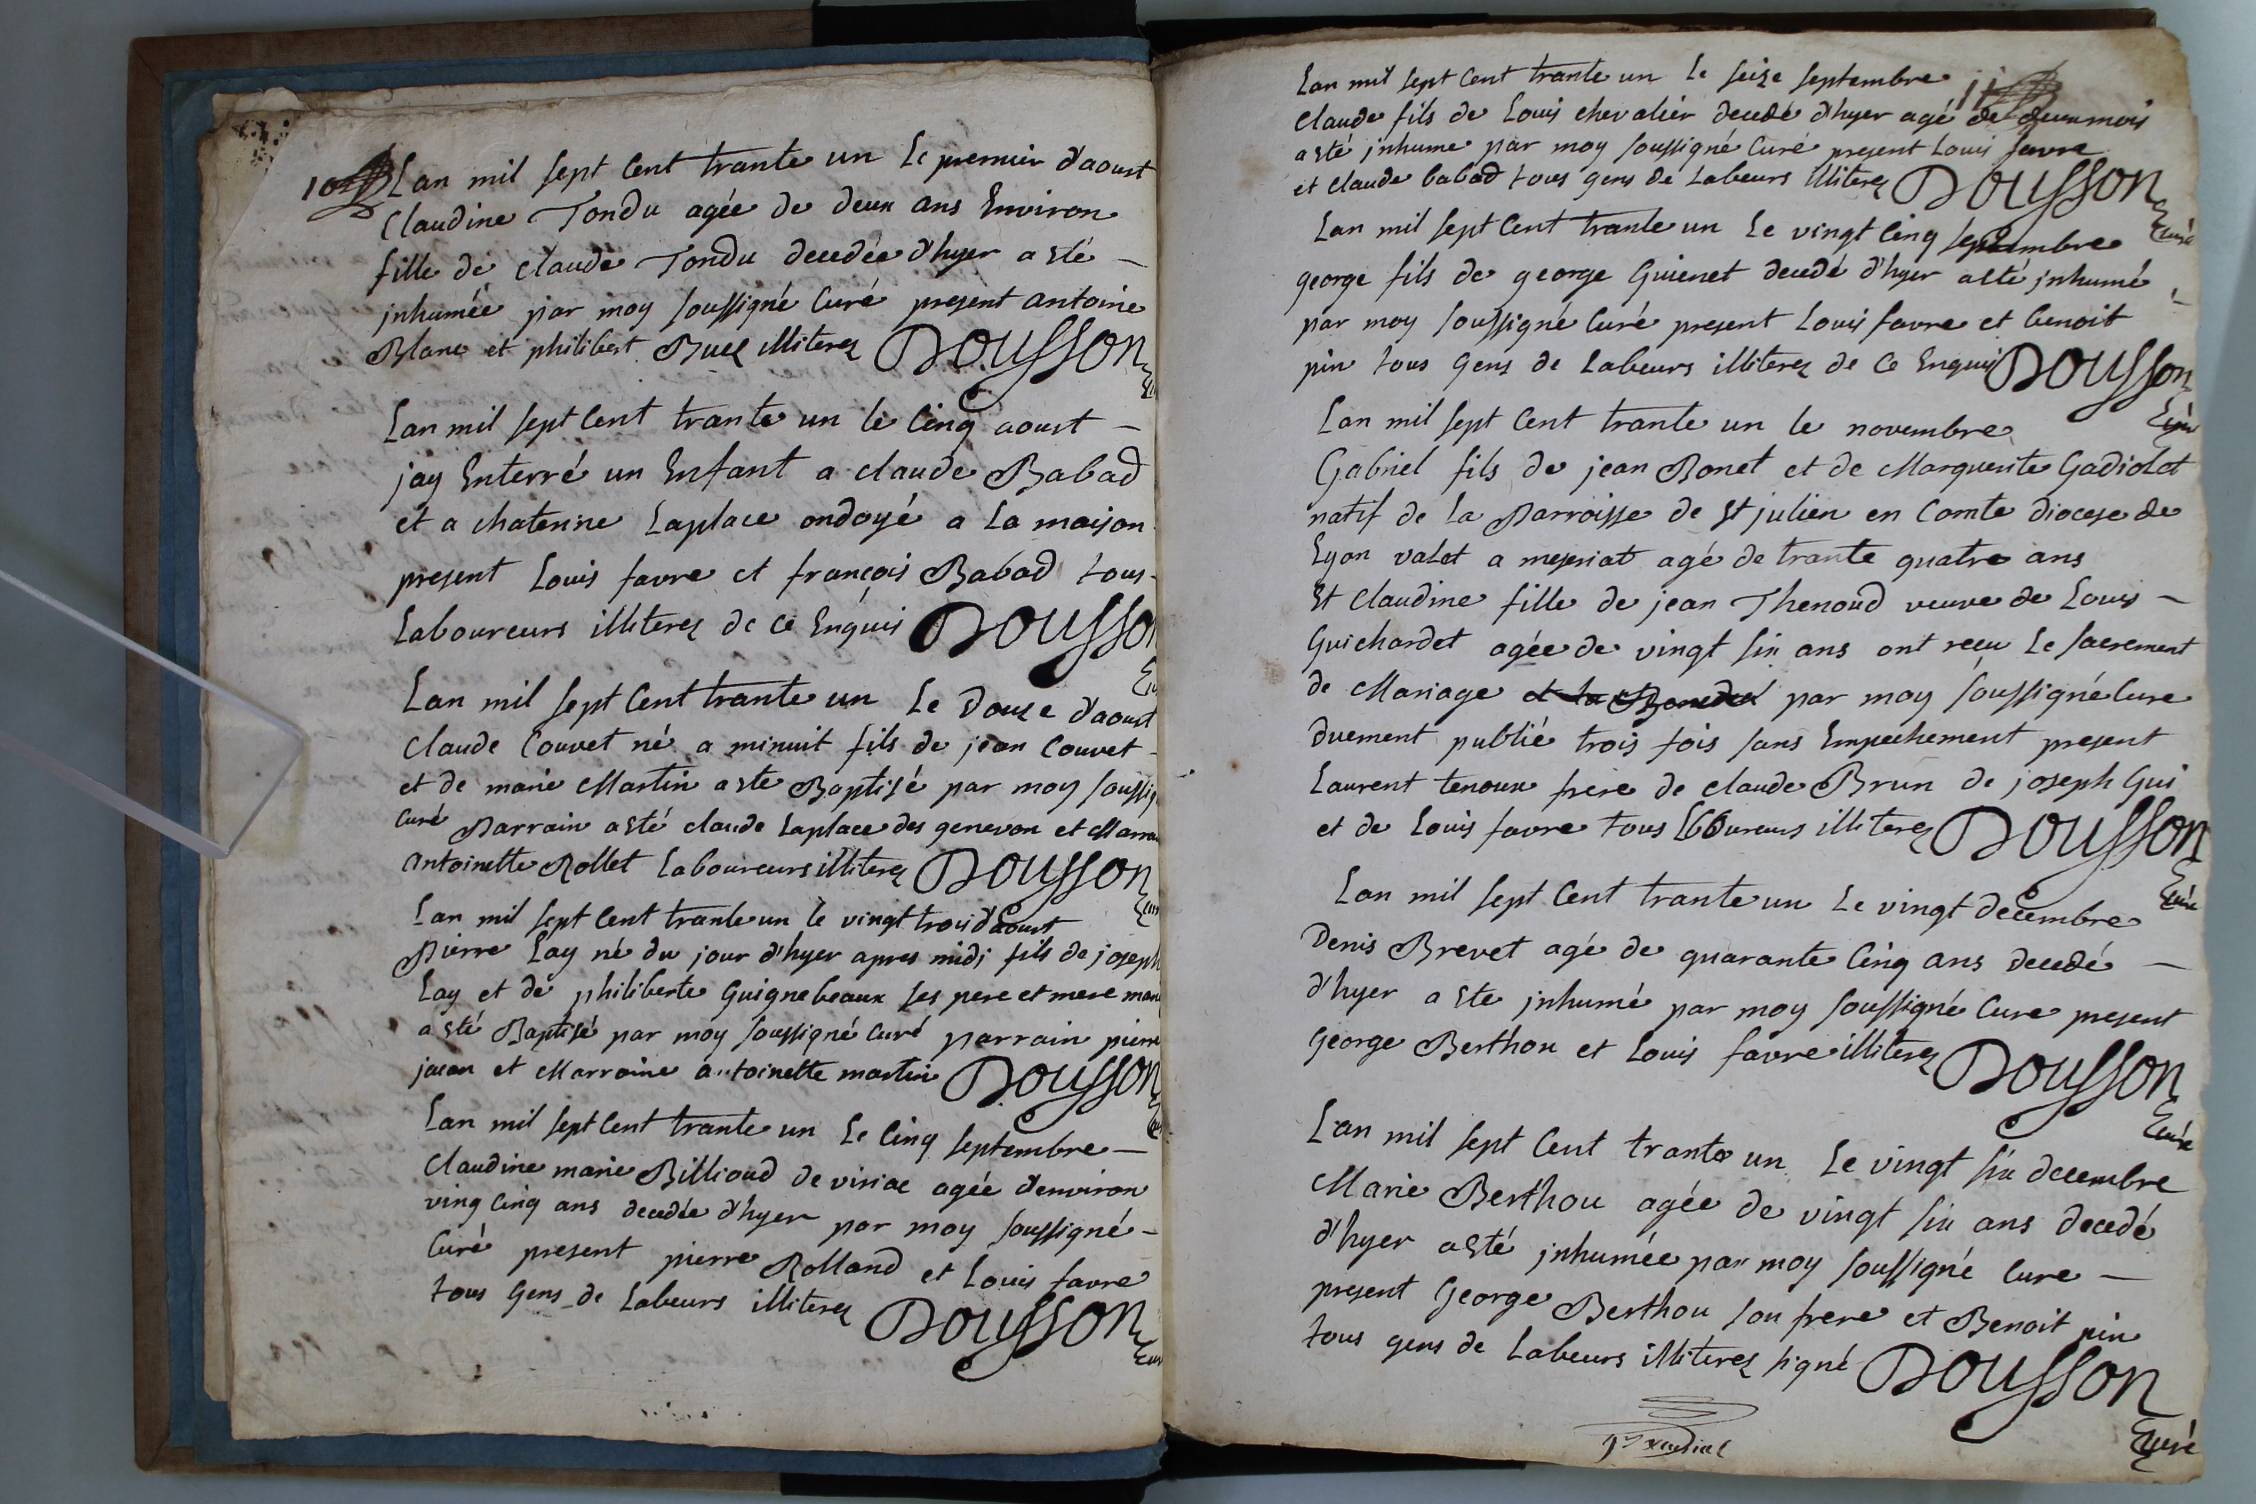 10
Lan mil sept Cent trante un Le premier d'aoust
Claudine Tondu agée de deux ans Environ
fille de Claude Tondu decedée d'hyer a esté
jnhumée par moy soussigné Curé present antoine
Blanc et philibert Buez illiterez Dousson
Lan mil sept Cent trante un le Cinq aoust
jay Enterré un Enfant a claude Babad
et a chaterine Laplace ondoyé a La maison
present Louis favre et françois Babad tous
Laboureurs illiterez de ce Enquis Dousson
Lan mil sept Cent trante un Le douze d'aoust
Claude Couvet né a minuit fils de jean Couvet
et de marie Martin a este Baptisé par moy soussig
Curé Parrain a esté claude Laplace des genevon et Marrai
antoinette Rollet Laboureurs illiterez Dousson
Lan mil sept Cent trante un le vingt trois d'aoust
Pierre Lay né du jour d'hyer apres midi fils de joseph
Lay et de philiberte Guignebeaux ses pere et mere mari
a esté Baptisé par moy soussigné Curé parrain pierre
et Marraine antoinette martin Dousson
Lan mil sept Cent trante un Le Cinq septembre
Claudine marie Billioud de viriac agée d'environ
ving Cinq ans decedée d'hyer par moy soussigné
Curé present pierre Rolland et Louis favre
tous Gens de Labeurs illiterez Dousson
Curé
11
Lan mil sept Cent trante un Le seize septembre
Claude fils de Louis chevalier decedé d'hyer agé de deux mois
a esté jnhume par moy soussigné Curé present Louis favre
et claude babad tous gens de Labeurs illiterez Dousson
Curé
Lan mil sept Cent trante un Le vingt Cinq septembre
george fils de george Guienet decedé d'hyer a esté jnhumé
par moy soussigné Curé present Louis favre et benoit
pin tous Gens de Labeurs illiterez de Ce Enquis Dousson
Curé
Lan mil sept Cent trante un le novembre
Gabriel fils de jean Bonet et de Marguerite Gadiolet
natif de La Parroisse de St julien en Comte diocese de
Lyon valet a mezeriat agé de trante quatre ans
Et Claudine fille de jean Thenoud veuve de Louis
Guichardet agée de vingt six ans ont reçu Le sacrement
de Mariage et la par moy soussigné Cure
duement publié trois fois sans Empechement present
Laurent tenoux frere de claude Brun de joseph Gui
et de Louis favre tous Laboureurs illiterez Dousson
Curé
Lan mil sept Cent trante un Le vingt decembre
Denis Brevet agé de quarante Cinq ans decedé
d'hyer a este jnhumé par moy soussigné Cure present
George Berthou et Louis favre illiterez Dousson
Curé
Lan mil sept Cent trante un Le vingt six decembre
Marie Berthou agée de vingt six ans decedé
d'hyer a esté jnhumée par moy soussigné Cure
present George Berthou son frere et Benoit pin
tous gens de Labeurs illiterez signé Dousson
Curé